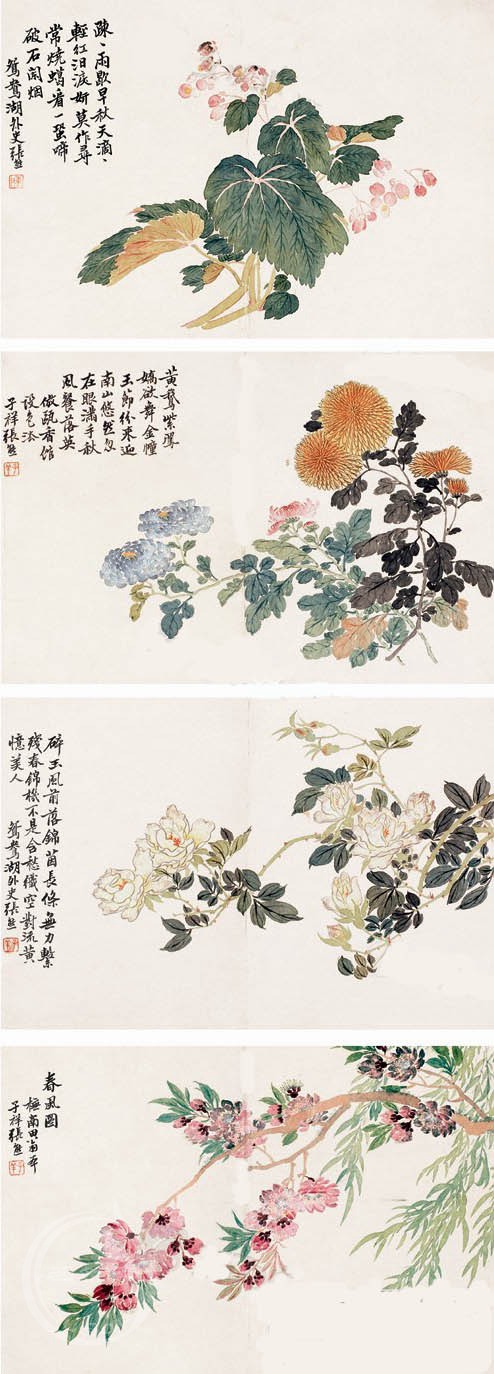 疎〻雨歇早秋天滴〻
輕紅泪妍莫作尋
常燒蜡看一蛩啼
破石闌烟
鴛鴦湖外史張熊
黃鵞紫鳳
嬌欲舞金幢
玉節紛來迎
南山悠然忽
在眼滿手秋
風餐落英
倣甌香館
設色法
子祥張熊
碎玉風前落錦茵長條無力繫
殘春錦機不是含愁織空對流黃
憶美人
鴛鴦湖外史張熊
春風圖
橅南田翁本
子祥張熊